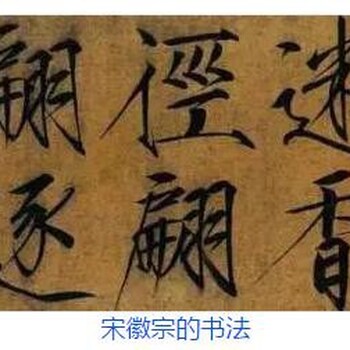 迷香
徑翩
翩逐
宋徽宗的书法